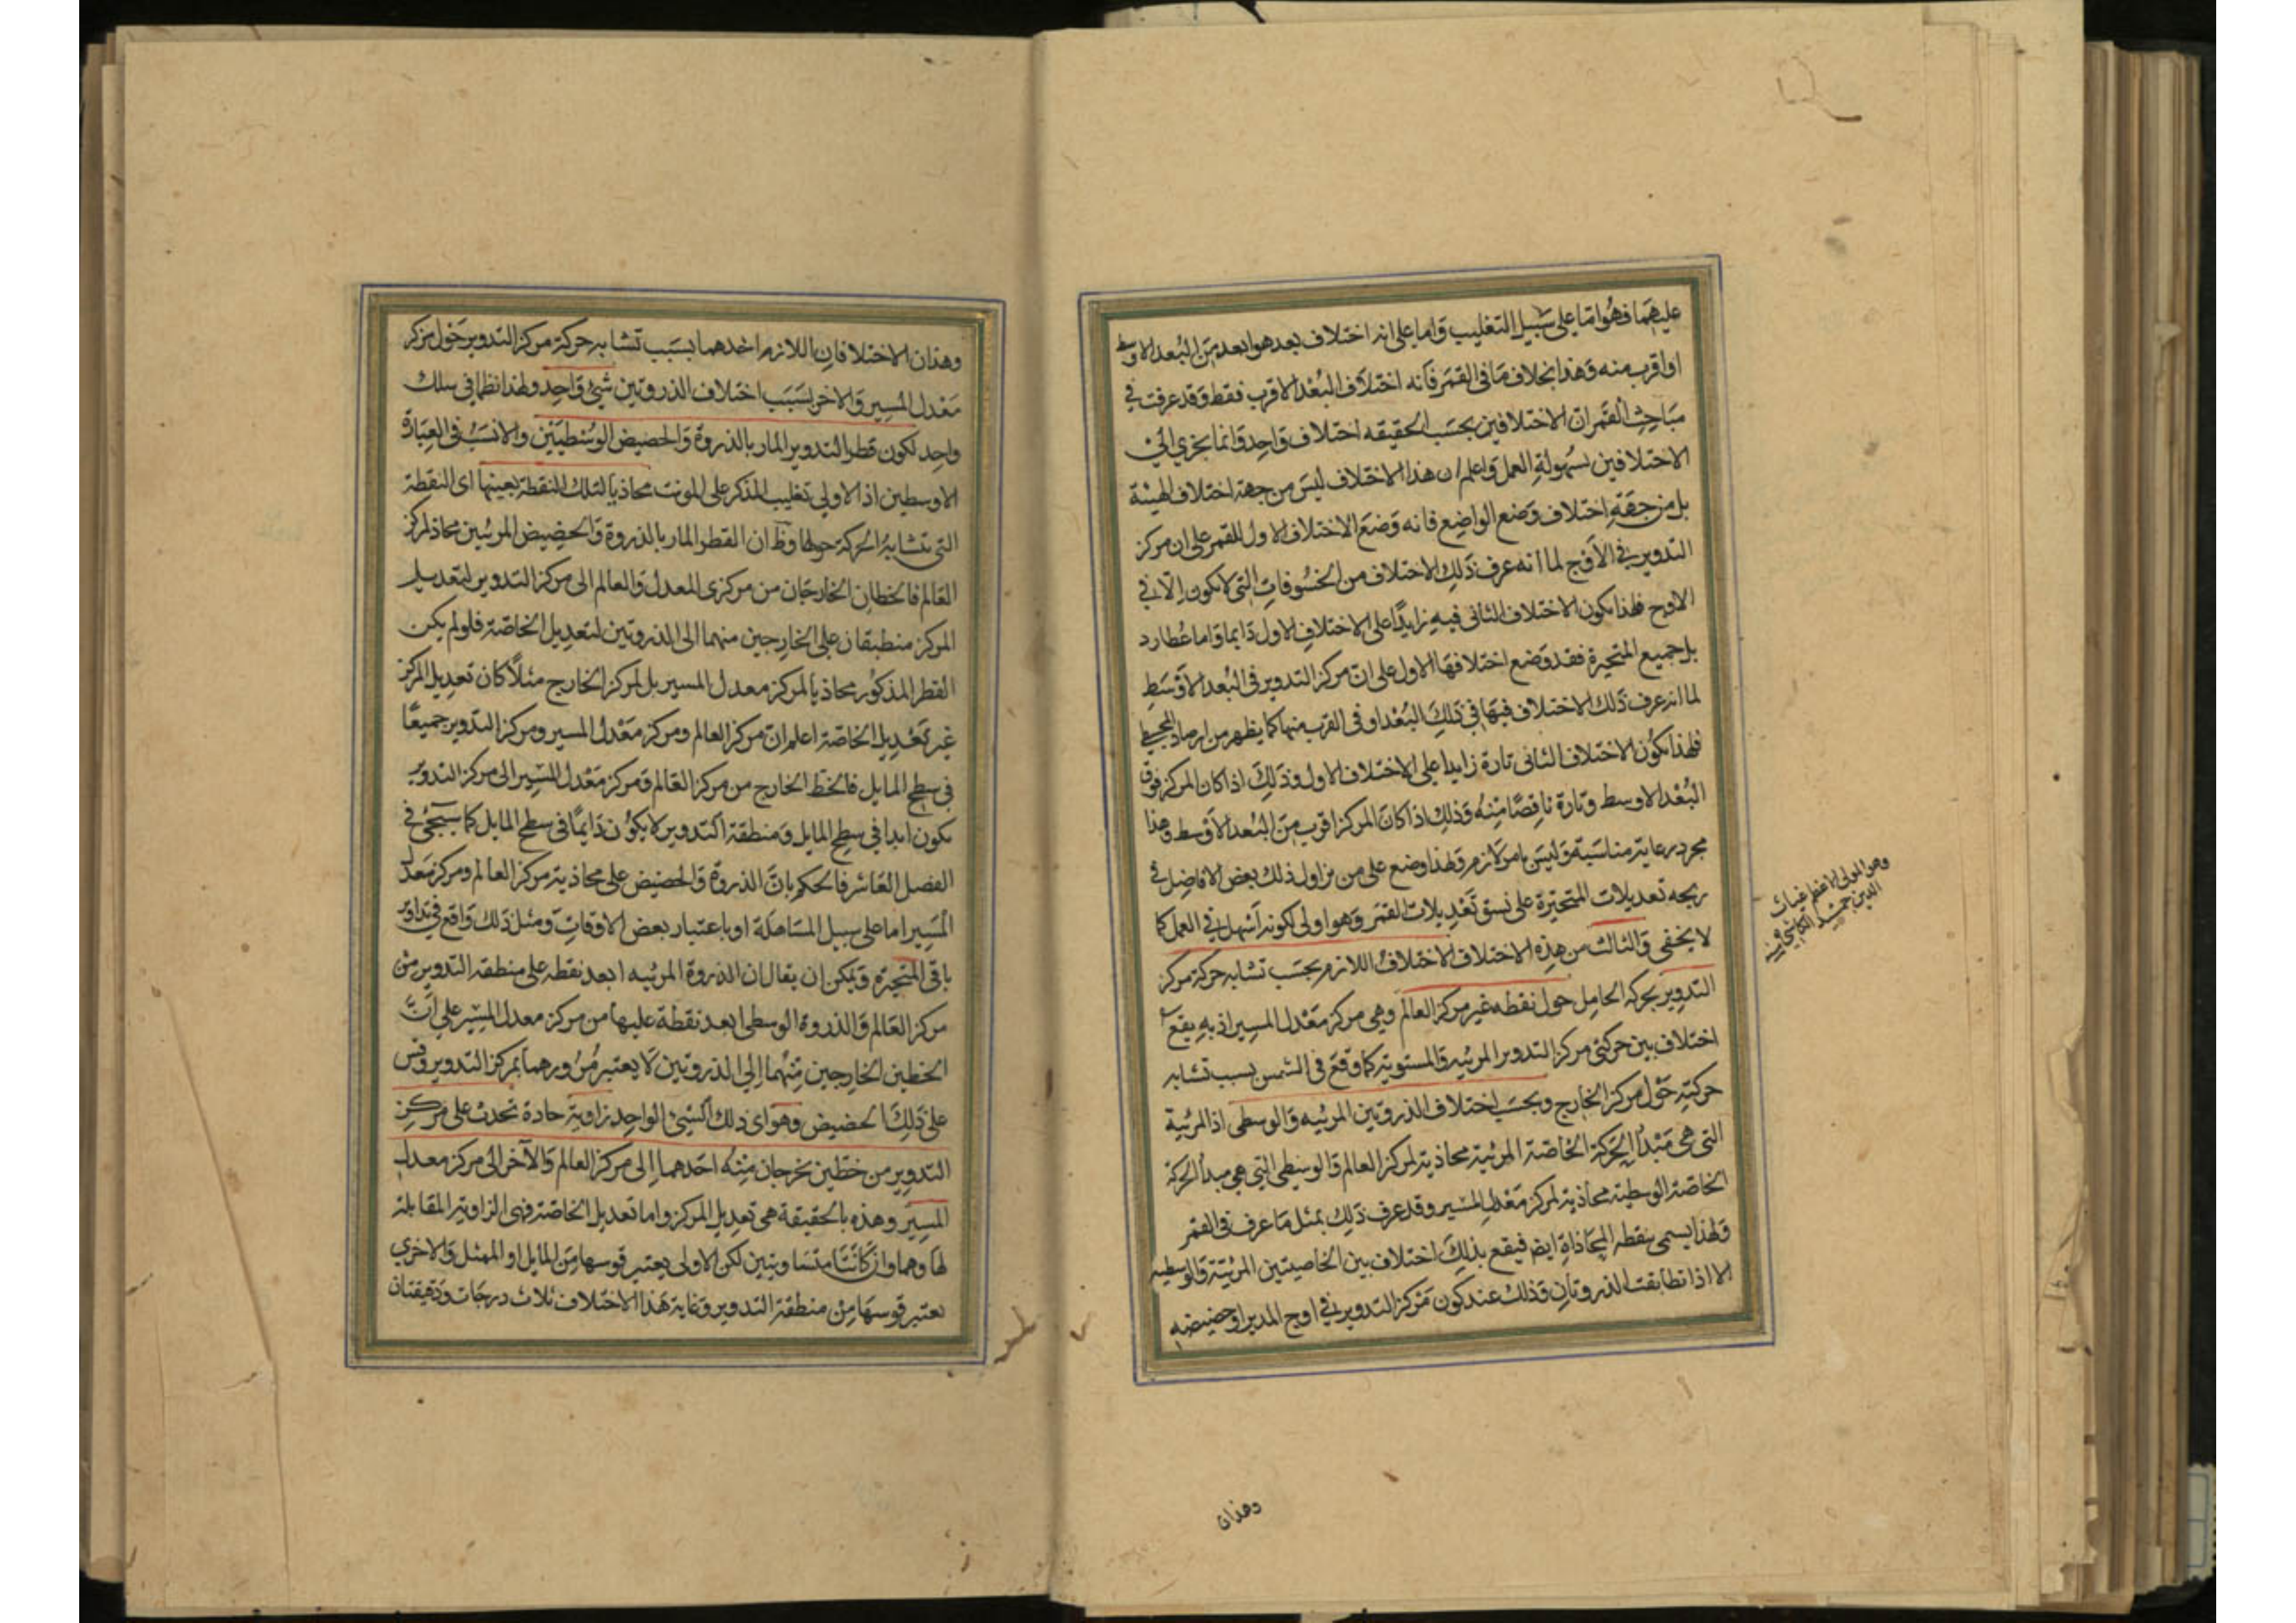 عليهما فهو اما على سبيل التغليب واما على انه اختلاف بعد هو ابعد من البعد الاوسط
او اقرب منه وهذا بخلاف ما في القمر فانه اختلاف البعد الاقرب فقط وقد عرفت في
مباحث القمر ان الاختلافين بحسب الحقيقه اختلاف واحد وانما يجزي الى
الاختلافين لسهولة العمل واعلم ان هذا الاختلاف ليس من جهة اختلاف الهيئة
بل من جهة اختلاف وضع الواضع فانه وضع الاختلاف الاول للقمر على ان مركز
التدوير في الاوج لما انه عرف ذلك الاختلاف من الخسوفات التي لا يكون الا في
الاوج فلهذا يكون الاختلاف الثاني فيه زايدا على الاختلاف الاول دايما واما عطارد
بل جميع المتحيرة فقد وضع اختلافها الاول على ان مركز التدوير في البعد الاوسط
لما انه عرف ذلك الاختلاف فيها في ذلك البعد او في القرب منها كما يظهر من ارصاد المجسطي
فلهذا يكون الاختلاف الثاني تارة زايدا على الاختلاف الاول وذلك اذا كان المركز فوق
البعد الاوسط وتارة ناقصا منه وذلك اذا كان المركز اقرب من البعد الاوسط وهذا
مجرد رعاية مناسبة وليس بامر لازم ولهذا وضع على من يزاول ذلك بعض الافاضل في
زيجه تعديلات المتحيرة على نسق تعديلات القمر وهو اولى لكونه اسهل في العمل كما
لا يخفى والثالث من هذه الاختلاف الاختلاف اللازم بحسب تشابه حركة مركز
التدوير بحركة الحامل حول نقطه غير مركز العالم وهي مركز معدل المسير اذ به يقع
اختلاف بين حركتي مركز التدوير المرئيه والمستوية كما وقع في الشمس بسبب تشابه
حركته حول مركز الخارج وبحسب اختلاف الذروتين المرئيه والوسطى اذ المرئية
التي هي مبدأ الحركة الخاصة المرئية محاذية لمركز العالم والوسطى التي هي مبدأ الحركة
الخاصة الوسطية محاذية لمركز معدل المسير وقد عرف ذلك بمثل ما عرف في القمر
ولهذا يسمى بنقطه المحاذاة ايضا فيقع بذلك اختلاف بين الخاصيتين المرئية والوسطيه
الا اذا تطابقت الذروتان وذلك عند كون مركز التدوير في اوج المدير او حضيضه
وهو المولى الاعظم غياث
الدين جمشيد الكاشي
وهذان
وهذان الاختلافان اللازم احدهما بسبب تشابه حركة مركز التدوير حول مركز
معدل المسير والاخر بسبب اختلاف الذروتين شيئ واحد ولهذا نظما في سلك
واحد لكون قطر التدوير المار بالذروة والحضيض الوسطيين والانسب في العبارة
الاوسطين اذ الاولى تغليب المذكر على المونث محاذيا لتلك النقطة بعينها اى النقطة
التي تتشابه الحركة حولها وظ ان القطر المار بالذروة والحضيض المرئيين محاذ لمركز
العالم فالخطان الخارجان من مركزى المعدل والعالم الى مركز التدوير لتعديل
المركز منطبقان على الخارجين منهما الى الذروتين لتعديل الخاصة فلو لم يكن
القطر المذكور محاذيا لمركز معدل المسير بل لمركز الخارج مثلا كان تعديل المركز
غير تعديل الخاصة اعلم ان مركز العالم ومركز معدل المسير ومركز التدوير جميعا
في سطح المايل فالخط الخارج من مركز العالم ومركز معدل المسير الى مركز التدوير
يكون ابدا في سطح المايل ومنطقة التدوير لا يكون دايما في سطح المايل كما سيجئ في
الفصل العاشر فالحكم بان الذروة والحضيض على محاذية مركز العالم ومركز معدل
المسير اما على سبيل المساهلة او باعتبار بعض الاوقات ومثل ذلك واقع في تداوير
باقي المتحيرة ويمكن ان يقال ان الذروة المرئيه ابعد نقطه على منطقه التدوير من
مركز العالم والذروة الوسطى ابعد نقطة عليها من مركز معدل المسير على ان
الخطين الخارجين منهما الى الذروتين لا يعتبر مرورهما بمركز التدوير وقس
على ذلك الحضيض وهو اى ذلك الشيئ الواحد زاوية حادة تحدث على مركز
التدوير من خطين يخرجان منه احدهما الى مركز العالم والآخر الى مركز معدل
المسير وهذه بالحقيقة هي تعديل المركز واما تعديل الخاصة فهي الزاوية المقابلة
لها وهما وان كانتا متساويتين لكن الاولى يعتبر قوسها من المايل او الممثل والاخرى
يعتبر قوسها من منطقة التدوير وغاية هذا الاختلاف ثلاث درجات ودقيقتان